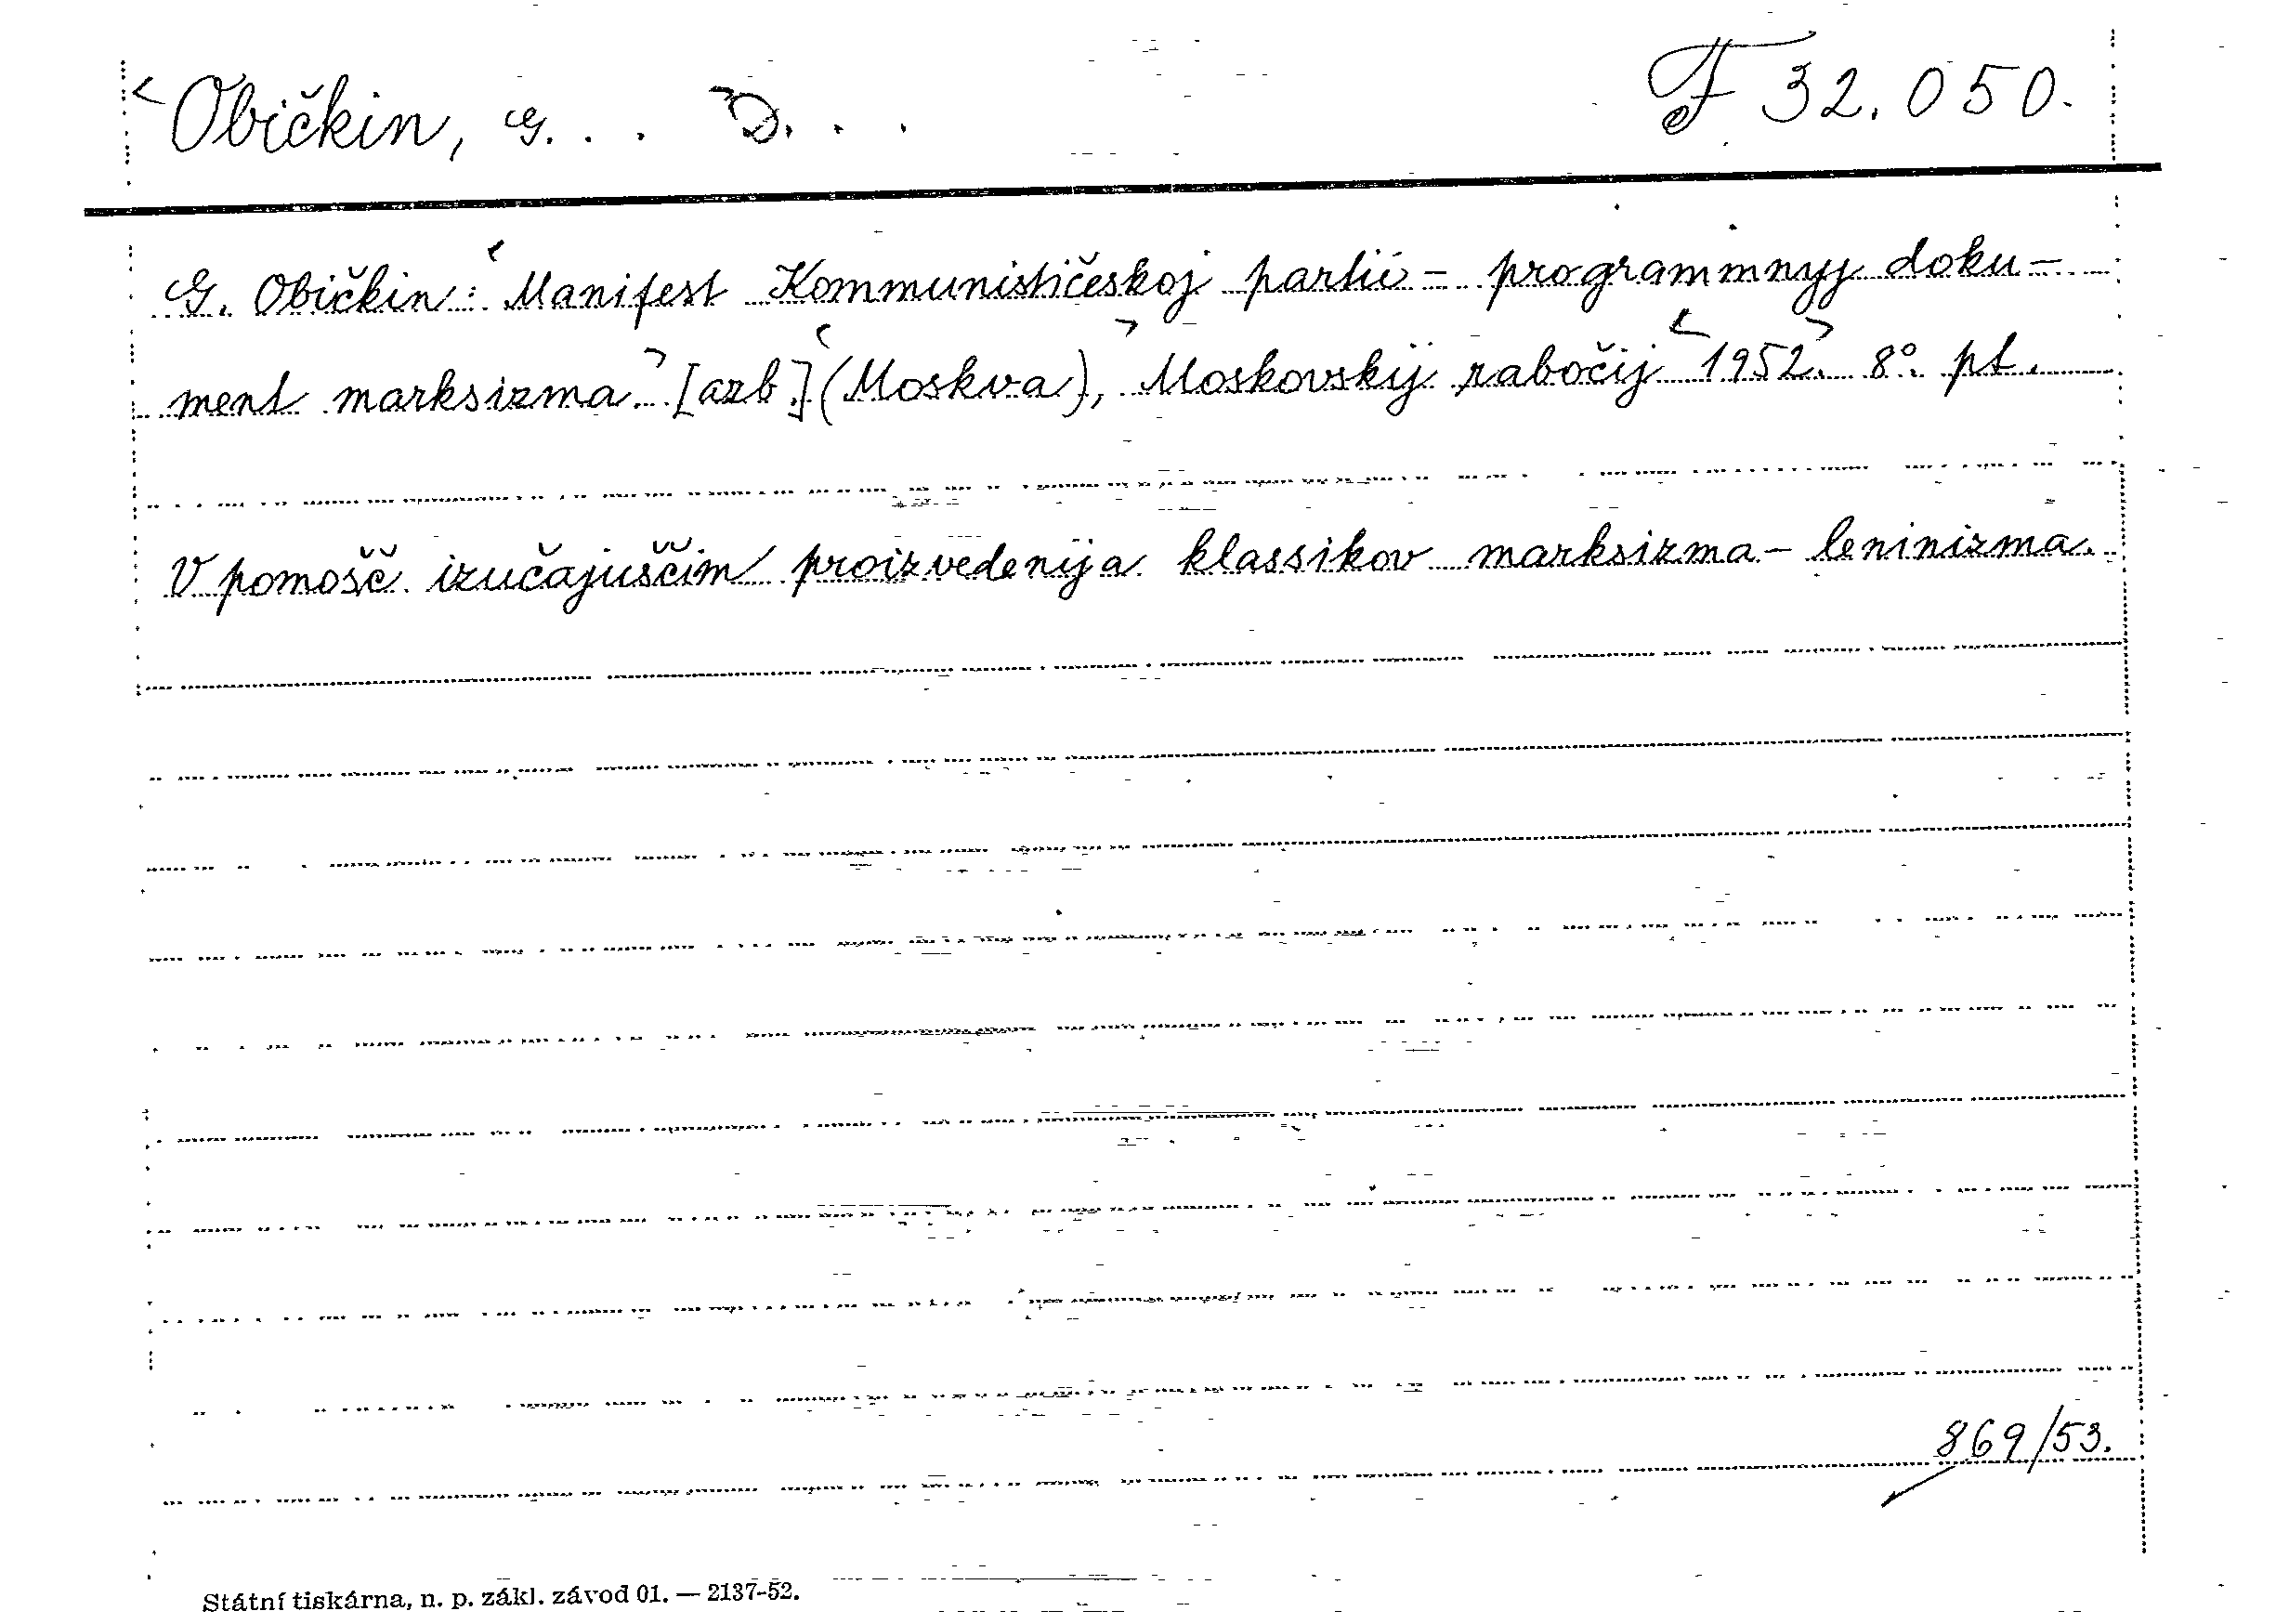 Običkin, G. . . D. . .
F 32.050.
G. Običkin: Manifest Kommunističeskoj partii - programmnyj doku-
ment marksizma. [azb.] (Moskva), Moskovskij rabočij 1952. 8°. pt.
V pomošč izučajuščim proizvedenija klassikov marksizma - leninizma.
869/53.
Státní tiskárna, n. p. zákl. závod 01. — 2137-52.